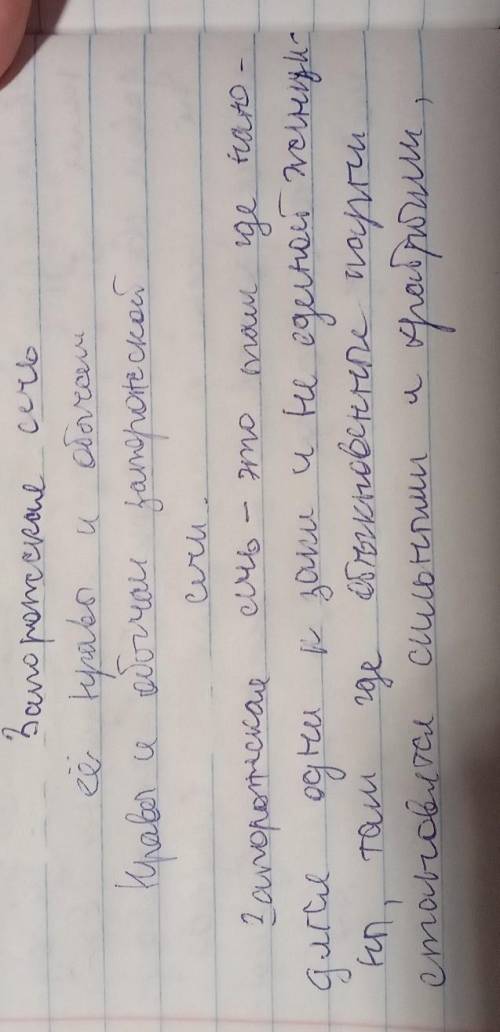 Запорожская сечь
её нравы и обычаи
Нравы и обычаи запорожской
сечи.
Запорожская сечь - это там где нахо-
дятся одни к заки и не одиной женщи-
ны, там где обыкновенные парни
становятся сильными и храбрыми,